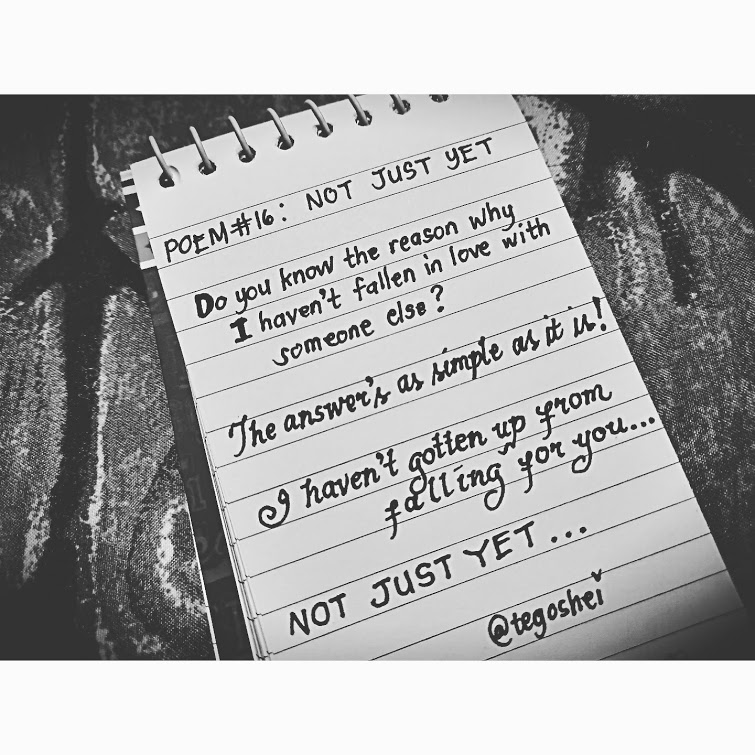 POEM#16: NOT JUST YET
Do you know the reason why
I haven't fallen in love with
someone else?
The answer's as simple as it is!
I haven't gotten up from
falling for you...
NOT JUST YET...
@tegoshei